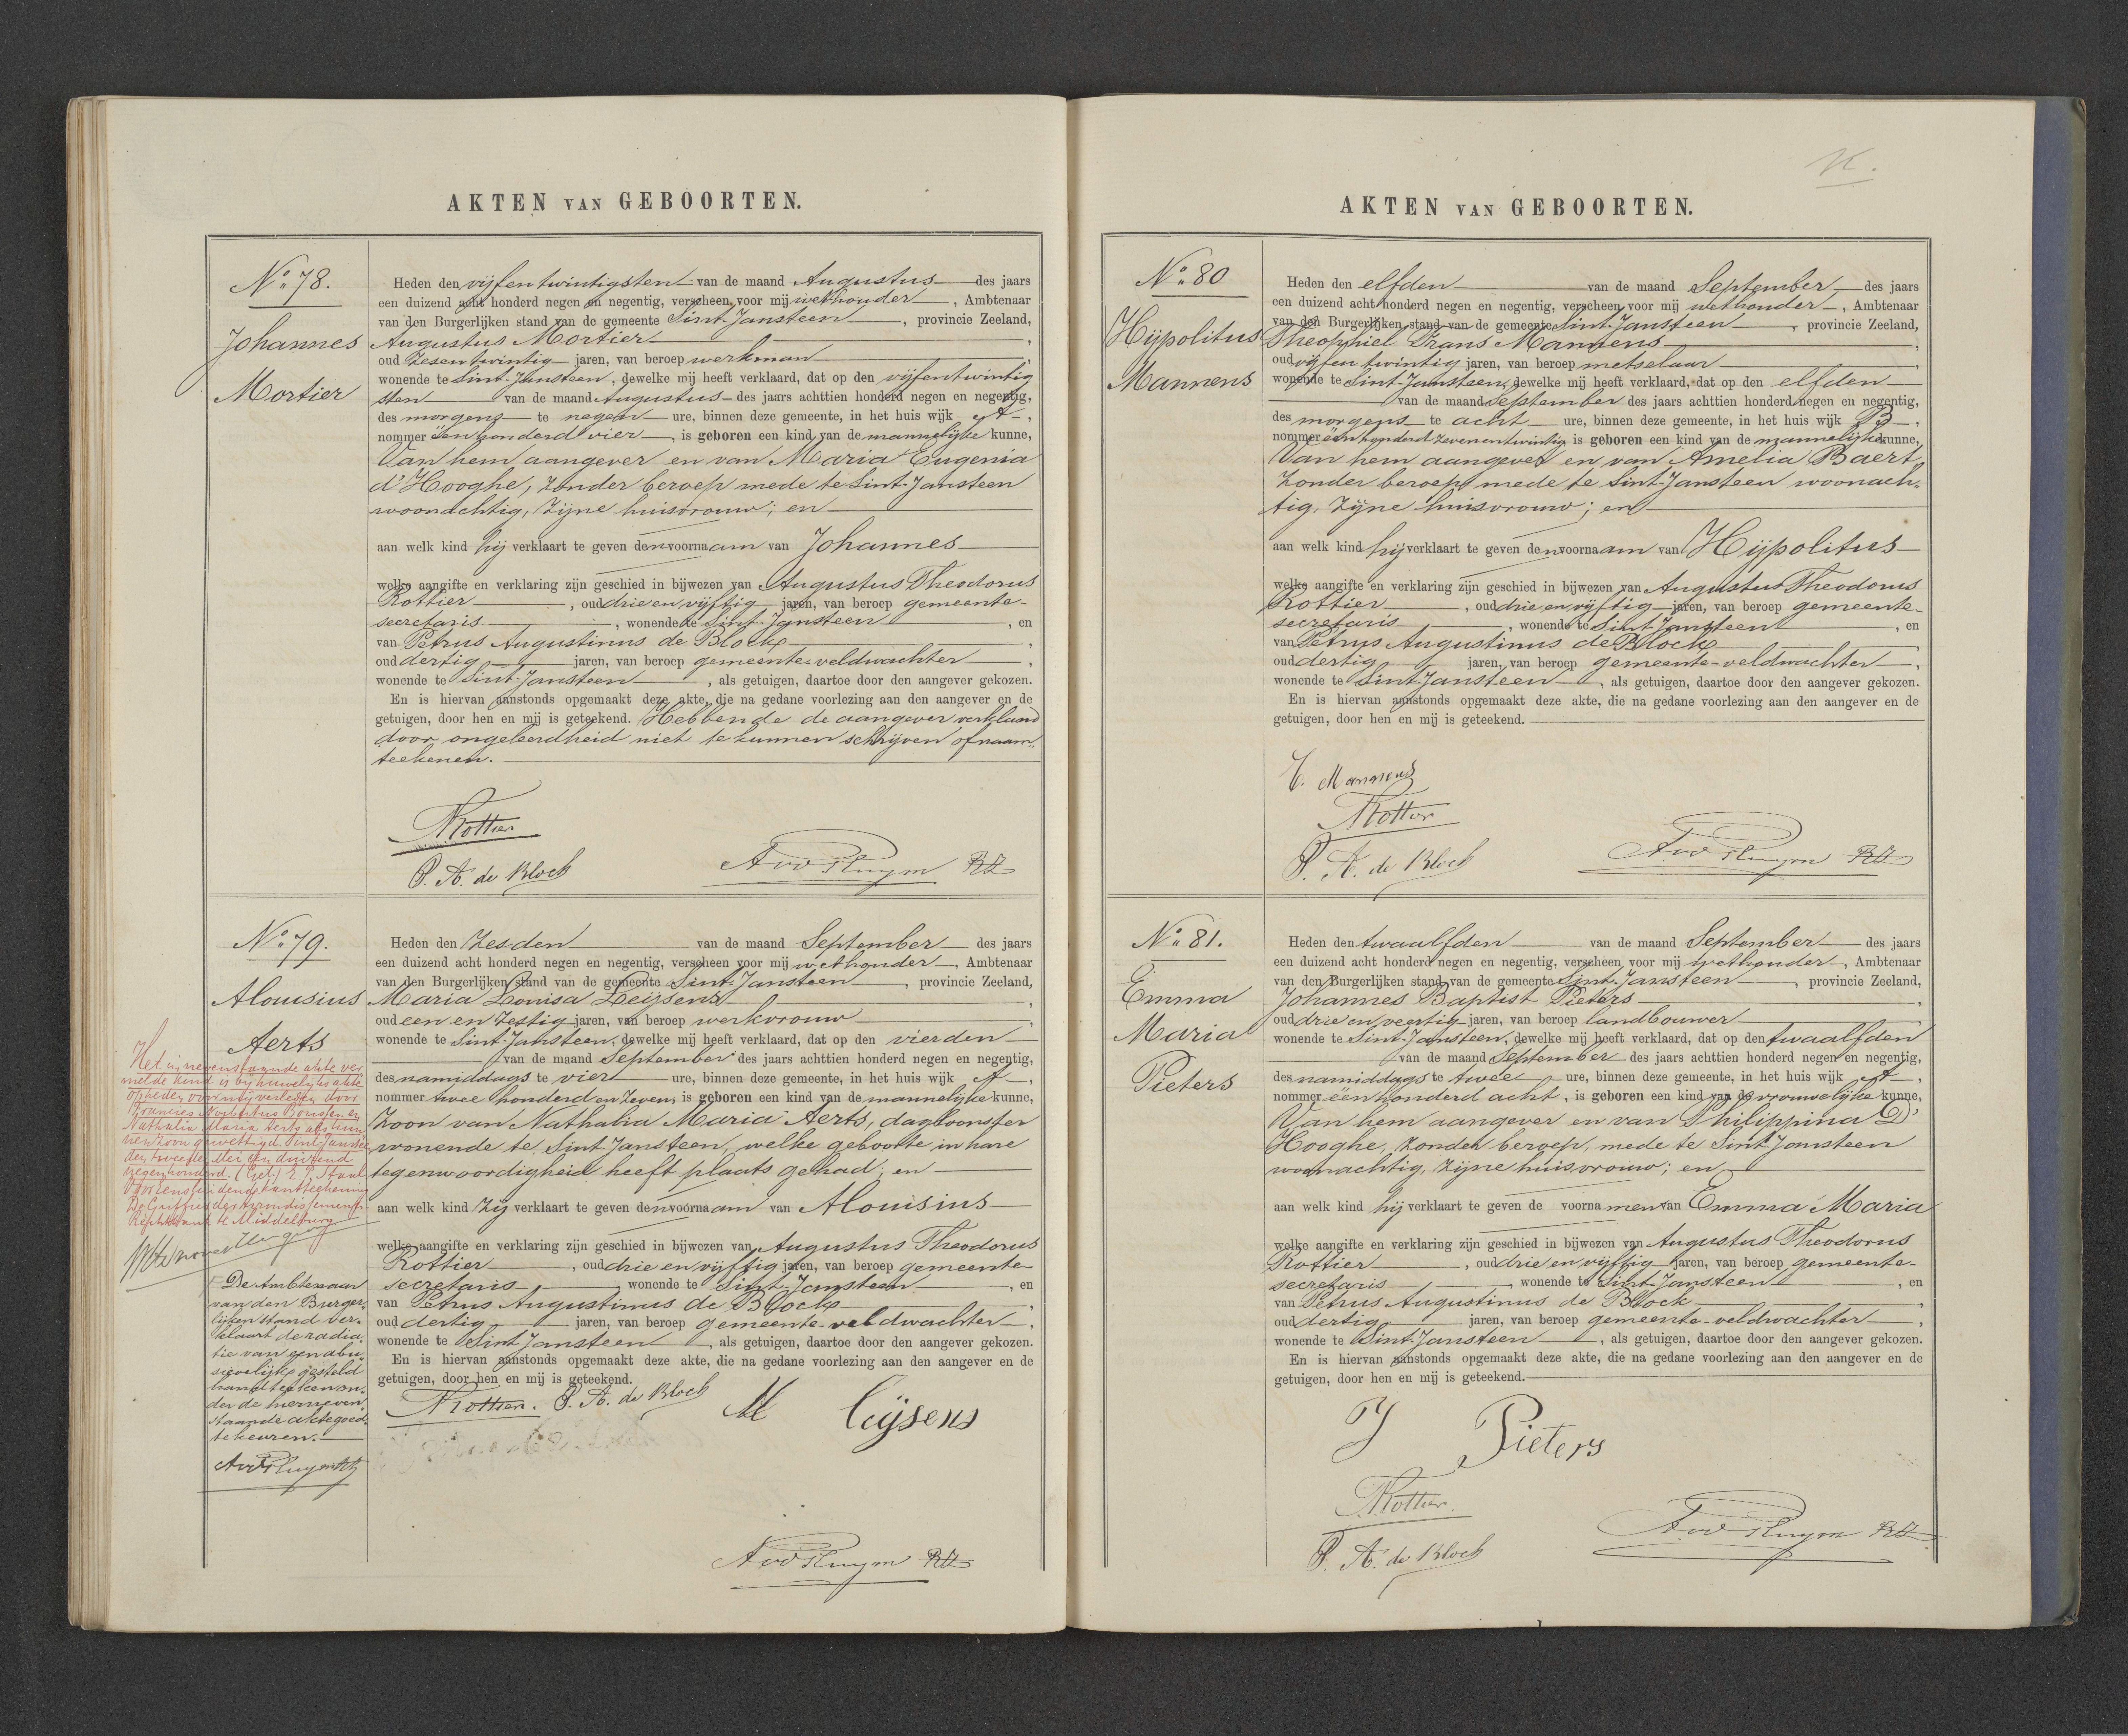 AKTEN VAN GEBOORTEN.
No. 78.
Johannes
Mortier
Heden den vijfentwintigsten van de maand Augustus des jaars
een duizend acht honderd negen en negentig, verscheen voor mij wethouder, Ambtenaar
van den Burgerlijken stand van de gemeente Sint-Jansteen, provincie Zeeland,
Augustus Mortier,
oud zesentwintig jaren, van beroep werkman,
wonende te Sint-Jansteen, dewelke mij heeft verklaard, dat op den vijfentwintig
sten van de maand Augustus des jaars achttien honderd negen en negentig,
des morgens te negen ure, binnen deze gemeente, in het huis wijk A,
nommer één honderd vier, is geboren een kind van de mannelijke kunne,
Van hem aangever en van Maria Eugenia
d'Hooghe, zonder beroep mede te Sint-Jansteen
woonachtig, zijne huisvrouw; en
aan welk kind hij verklaart te geven den voornaam van Johannes
welke aangifte en verklaring zijn geschied in bijwezen van Augustus Theodorus
Rottier, oud drie en vijftig jaren, van beroep gemeente-
secretaris, wonende te Sint-Jansteen, en
van Petrus Augustinus de Block,
oud dertig jaren, van beroep gemeente-veldwachter,
wonende te Sint-Jansteen, als getuigen, daartoe door den aangever gekozen.
En is hiervan aanstonds opgemaakt deze akte, die na gedane voorlezing aan den aangever en de
getuigen, door hen en mij is geteekend. Hebbende de aangever verklaard
door ongeleerdheid niet te kunnen schrijven of naam-
teekenen.
Rottier
P. A. de Block
No. 79.
Alouisius
Aerts
Het in nevenstaande akte ver
melde kind is bij huwelijks akte
op heden voor mij verleden door
Francies Norbertus
Nathalia Maria Aerts als hun
nen zoon gewettigd. Sint Jansteen
den tweeden Mei een duizend
negenhonderd. (Get)
De Griffier der Arrondissements
Rechtbank te Middelburg
De Ambtenaar
van den Burger-
lijken stand ver-
klaart de radia-
tie van een abu-
sievelijk gesteld
handteeken on-
der de hierneven-
staande akte goed
te keuren.
Heden den zesden van de maand September des jaars
een duizend acht honderd negen en negentig, verscheen voor mij wethouder, Ambtenaar
van den Burgerlijken stand van de gemeente Sint-Jansteen, provincie Zeeland,
Maria Louisa Leijsens,
oud een en zestig jaren, van beroep werkvrouw,
wonende te Sint-Jansteen, dewelke mij heeft verklaard, dat op den vierden
van de maand September des jaars achttien honderd negen en negentig,
des namiddags te vier ure, binnen deze gemeente, in het huis wijk A,
nommer twee honderd en zeven, is geboren een kind van de mannelijke kunne,
Zoon van Nathalia Maria Aerts, dagloonster
wonende te Sint Jansteen, welke geboorte in hare
tegenwoordigheid heeft plaats gehad; en
aan welk kind zij verklaart te geven den voornaam van Alouisius
welke aangifte en verklaring zijn geschied in bijwezen van Augustus Theodorus
Rottier, oud drie en vijftig jaren, van beroep gemeente-
secretaris, wonende te Sint-Jansteen, en
van Petrus Augustinus de Block,
oud dertig jaren, van beroep gemeente-veldwachter,
wonende te Sint Jansteen, als getuigen, daartoe door den aangever gekozen.
En is hiervan aanstonds opgemaakt deze akte, die na gedane voorlezing aan den aangever en de
getuigen, door hen en mij is geteekend.
Rottier. P. A. de Block M leijsens
AKTEN VAN GEBOORTEN.
No. 80
Hijpolitus
Mannens
Heden den elfden van de maand September des jaars
een duizend acht honderd negen en negentig, verscheen voor mij wethouder, Ambtenaar
van den Burgerlijken stand van de gemeente Sint-Jansteen, provincie Zeeland,
Theophiel Frans Mannens,
oud vijfentwintig jaren, van beroep metselaar,
wonende te Sint-Jansteen, dewelke mij heeft verklaard, dat op den elfden
van de maand September des jaars achttien honderd negen en negentig,
des morgens te acht ure, binnen deze gemeente, in het huis wijk B,
nommer één honderd zevenentwintig is geboren een kind van de mannelijke kunne,
Van hem aangever en van Amelia Baert,
zonder beroep mede te Sint-Jansteen woonach-
tig, zijne huisvrouw; en
aan welk kind hij verklaart te geven den voornaam van Hijpolitus
welke aangifte en verklaring zijn geschied in bijwezen van Augustus Theodorus
Rottier, oud drie en vijftig jaren, van beroep gemeente-
secretaris, wonende te Sint Jansteen, en
van Petrus Augustinus de Block,
oud dertig jaren, van beroep gemeente-veldwachter,
wonende te Sint Jansteen, als getuigen, daartoe door den aangever gekozen.
En is hiervan aanstonds opgemaakt deze akte, die na gedane voorlezing aan den aangever en de
getuigen, door hen en mij is geteekend.
Mannens
Rottier
P. A. de Block
No. 81.
Emma
Maria
Pieters
Heden den twaalfden van de maand September des jaars
een duizend acht honderd negen en negentig, verscheen voor mij wethouder, Ambtenaar
van den Burgerlijken stand van de gemeente Sint-Jansteen, provincie Zeeland,
Johannes Baptist Pieters,
oud drie en veertig jaren, van beroep landbouwer,
wonende te Sint-Jansteen, dewelke mij heeft verklaard, dat op den twaalfden
van de maand September des jaars achttien honderd negen en negentig,
des namiddags te twee ure, binnen deze gemeente, in het huis wijk A,
nommer één honderd acht, is geboren een kind van de vrouwelijke kunne,
Van hem aangever en van Philippina D'
Hooghe, zonder beroep, mede te Sint Jansteen
woonachtig, zijne huisvrouw; en
aan welk kind hij verklaart te geven de voornamen van Emma Maria
welke aangifte en verklaring zijn geschied in bijwezen van Augustus Theodorus
Rottier, oud drie en vijftig jaren, van beroep gemeente-
secretaris, wonende te Sint Jansteen, en
van Petrus Augustinus de Block,
oud dertig jaren, van beroep gemeente-veldwachter,
wonende te Sint Jansteen, als getuigen, daartoe door den aangever gekozen.
En is hiervan aanstonds opgemaakt deze akte, die na gedane voorlezing aan den aangever en de
getuigen, door hen en mij is geteekend.
Pieters
Rottier.
P. A. de Block